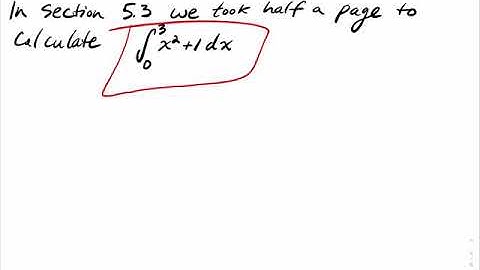 In section 5.3 we took half a page to
Calculate ∫₀³ x²+1 dx